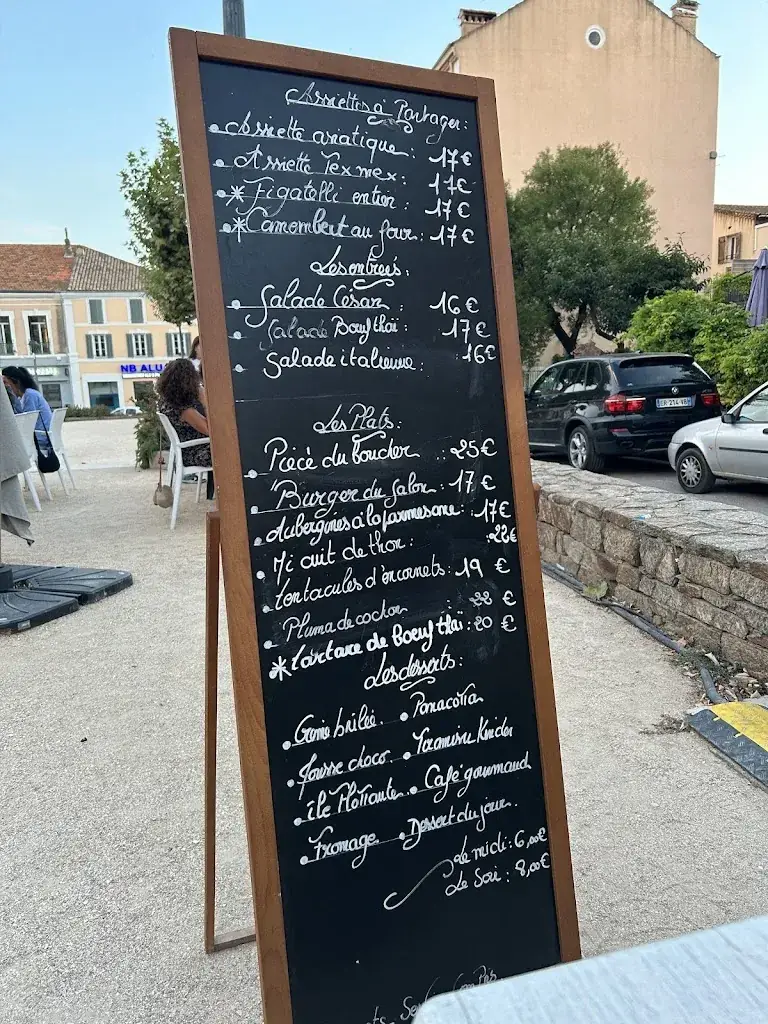 Assiettes à Partager:
• Assiette asiatique: 17€
• Assiette Texmex: 17€
• * Figatelli entier: 17€
• * Camembert au four: 17€
Les entrées:
• Salade César: 16€
• Salade Bœuf thaï: 17€
• Salade italienne: 16€
Les Plats:
• Piécé du boucher: 25€
• Burger du Salon: 17€
• Aubergines à la parmesane: 17€
• Mi cuit de thon: 22€
• Tentacules d'encornets: 19€
• Pluma de cochon 22€
* Tartare de Bœuf thaï: 20€
Les desserts:
• Crème brûlée • Panacotta
• Mousse choco • Tiramisu Kinder
• île Flottante • Café gourmand
• Fromage • Dessert du jour.
Le midi: 6,00€
Le Soir: 8,00€
NB ALU
ER 214 VB